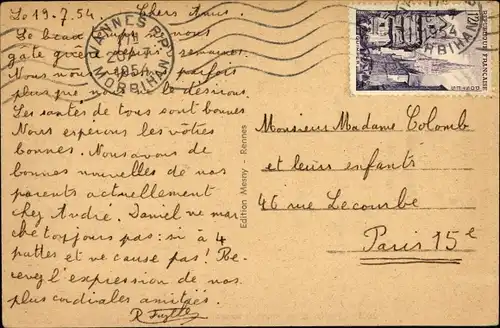 Le 19.7.54 Chers Amis.
Le beau temps ne nous
gâte guère depuis semaines.
Nous nous parfois
plus que nous le désirons.
Les santés de tous sont bonnes
Nous espérons les vôtres
bonnes. Nous avons de
bonnes nouvelles de nos
parents actuellement
chez André. Daniel ne mar
che toujours pas: si à 4
pattes et ne cause pas! Re-
cevez l'expression de nos
plus cordiales amitiés.
VANNES R.P.
1954
MORBIHAN
1954
MORBIHAN
12F
REPUBLIQUE FRANÇAISE
Edition Mesny - Rennes
Monsieur Madame Colomb
et leurs enfants
46 rue Lecourbe
Paris 15e